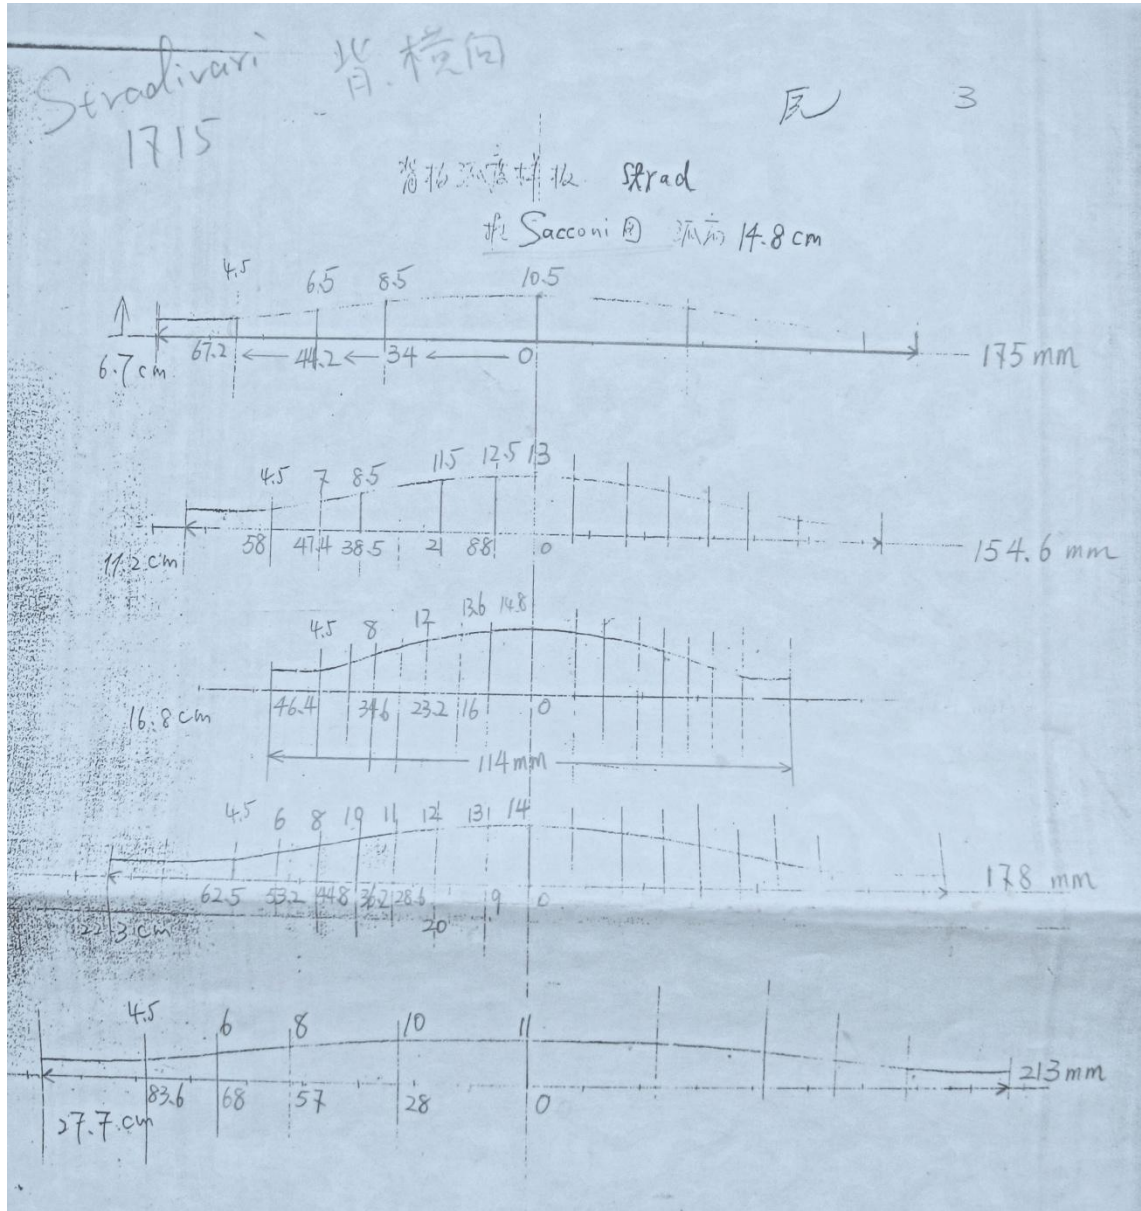 Stradivari 背.横向
1715
3
背板弧度样板 Strad
按 Sacconi 图 弧高 14.8 cm
4.5 6.5 8.5 10.5
6.7 cm 67.2 ← 44.2 ← 34 ← 0 175 mm
4.5 7 8.5 11.5 12.5 13
11.2 cm 58 47.4 38.5 21 8.8 0 154.6 mm
4.5 8 12 13.6 14.8
16.8 cm 46.4 34.6 23.2 16 0
114 mm
4.5 6 8 10 11 12 13 14
62.5 53.2 44.8 36.2 28.6 9 0 178 mm
22.3 cm 20
4.5 6 8 10 11
83.6 68 57 28 0 213 mm
27.7 cm